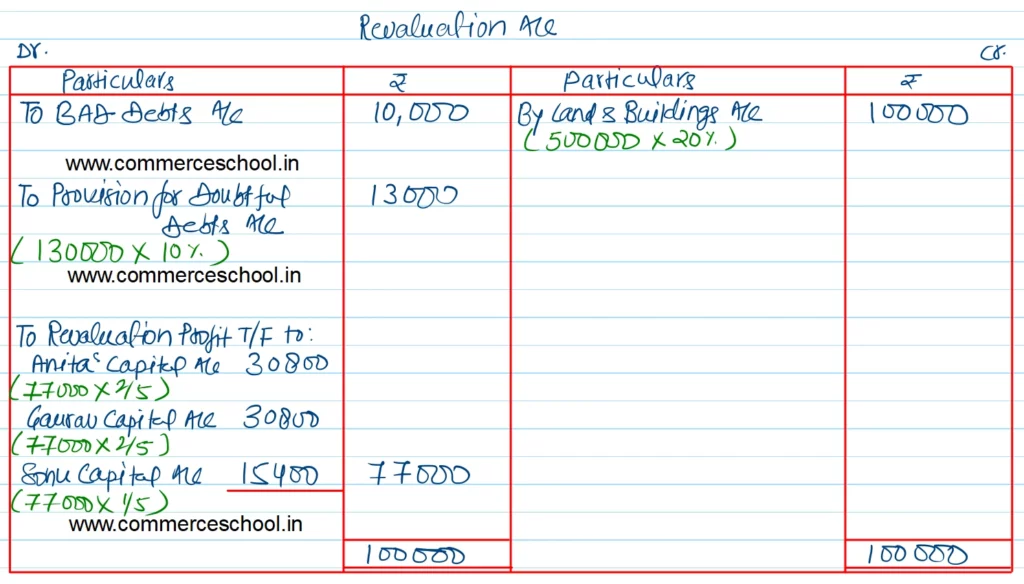 Revaluation A/c
Dr. Cr.
Particulars ₹ Particulars ₹
To BAD Debts A/c 10,000 By Land & Buildings A/c 100000
(500000 X 20%)
www.commerceschool.in
To Provision for Doubtful 13000
Debts A/c
(130000 X 10%)
www.commerceschool.in
To Revaluation Profit T/F to:
Anita's Capital A/c 30800
(77000 X 2/5)
Gaurav Capital A/c 30800
(77000 X 2/5)
Sonu Capital A/c 15400 77000
(77000 X 1/5)
www.commerceschool.in
100000 100000